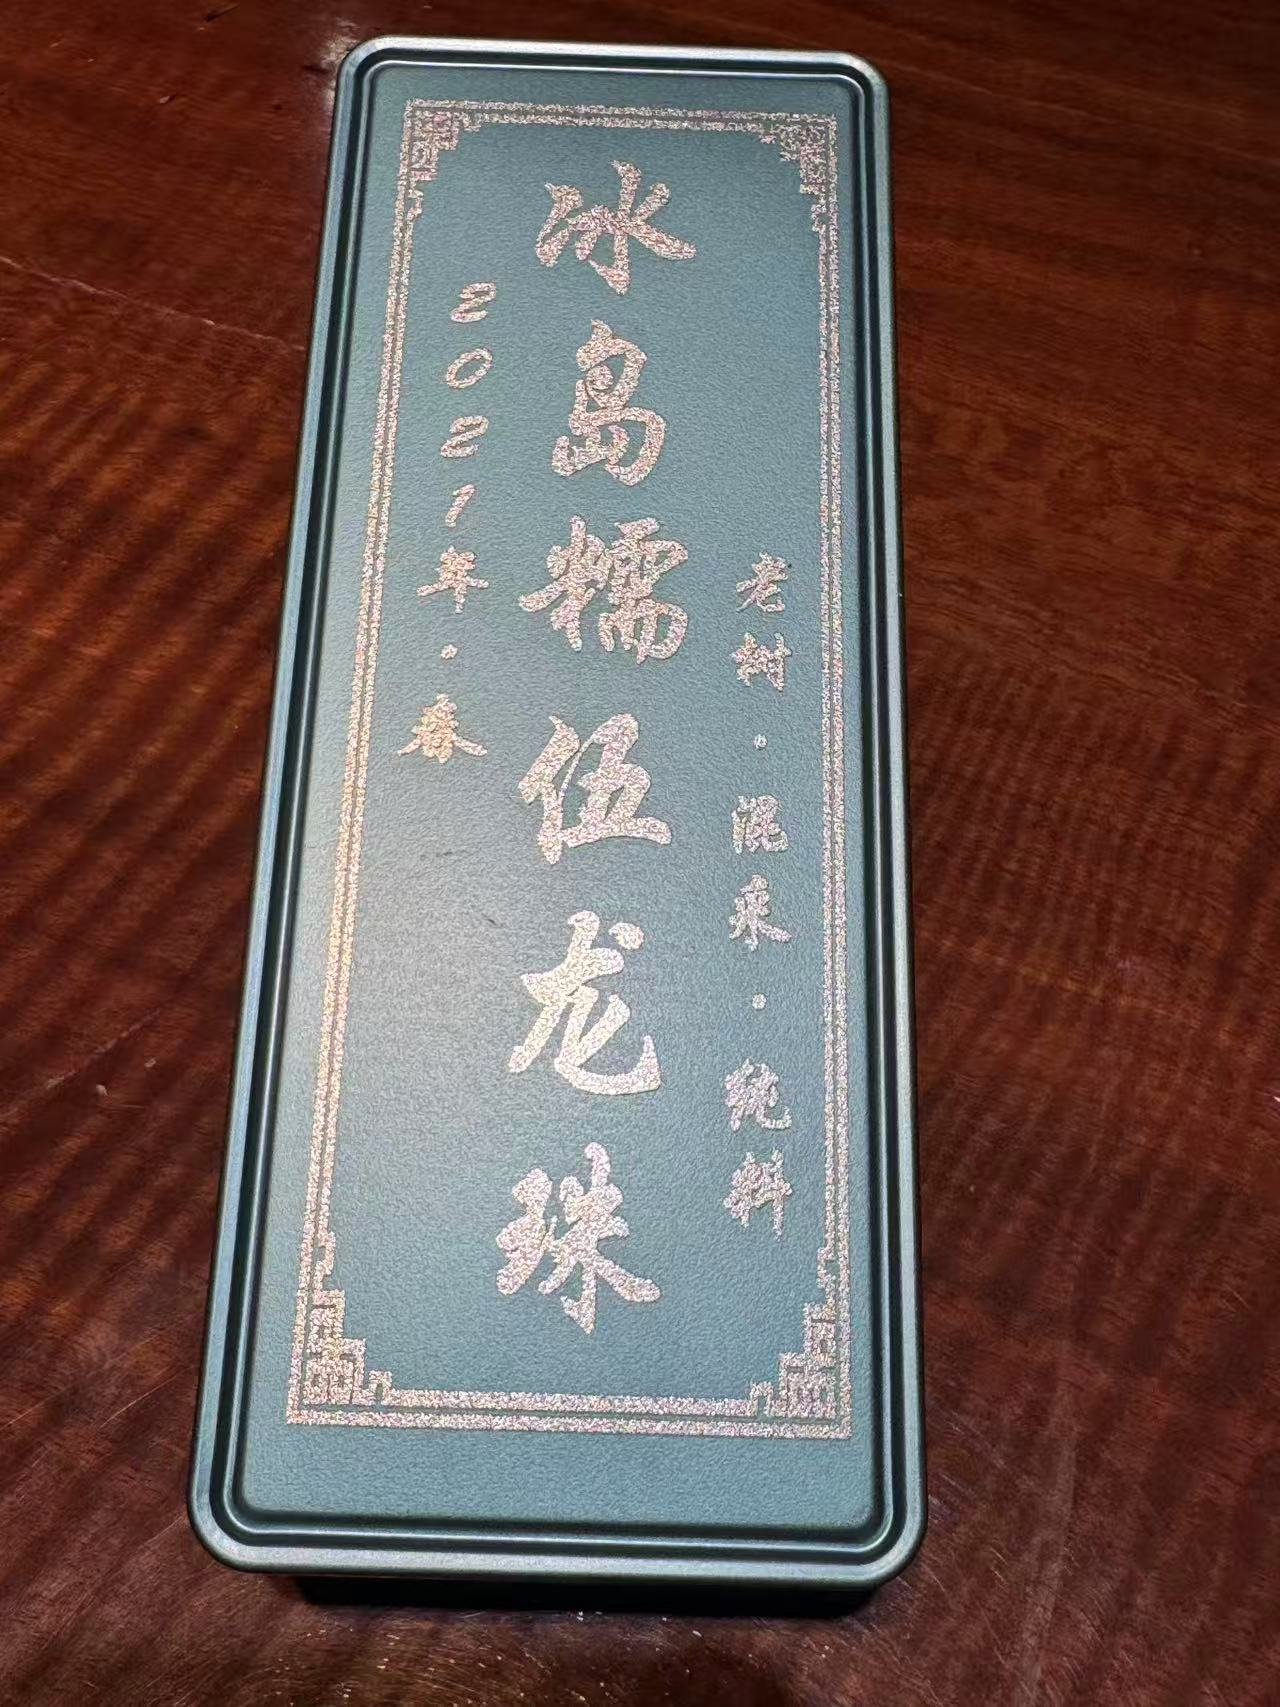 老树·混采·纯料
冰岛糯伍龙珠
2021年·春